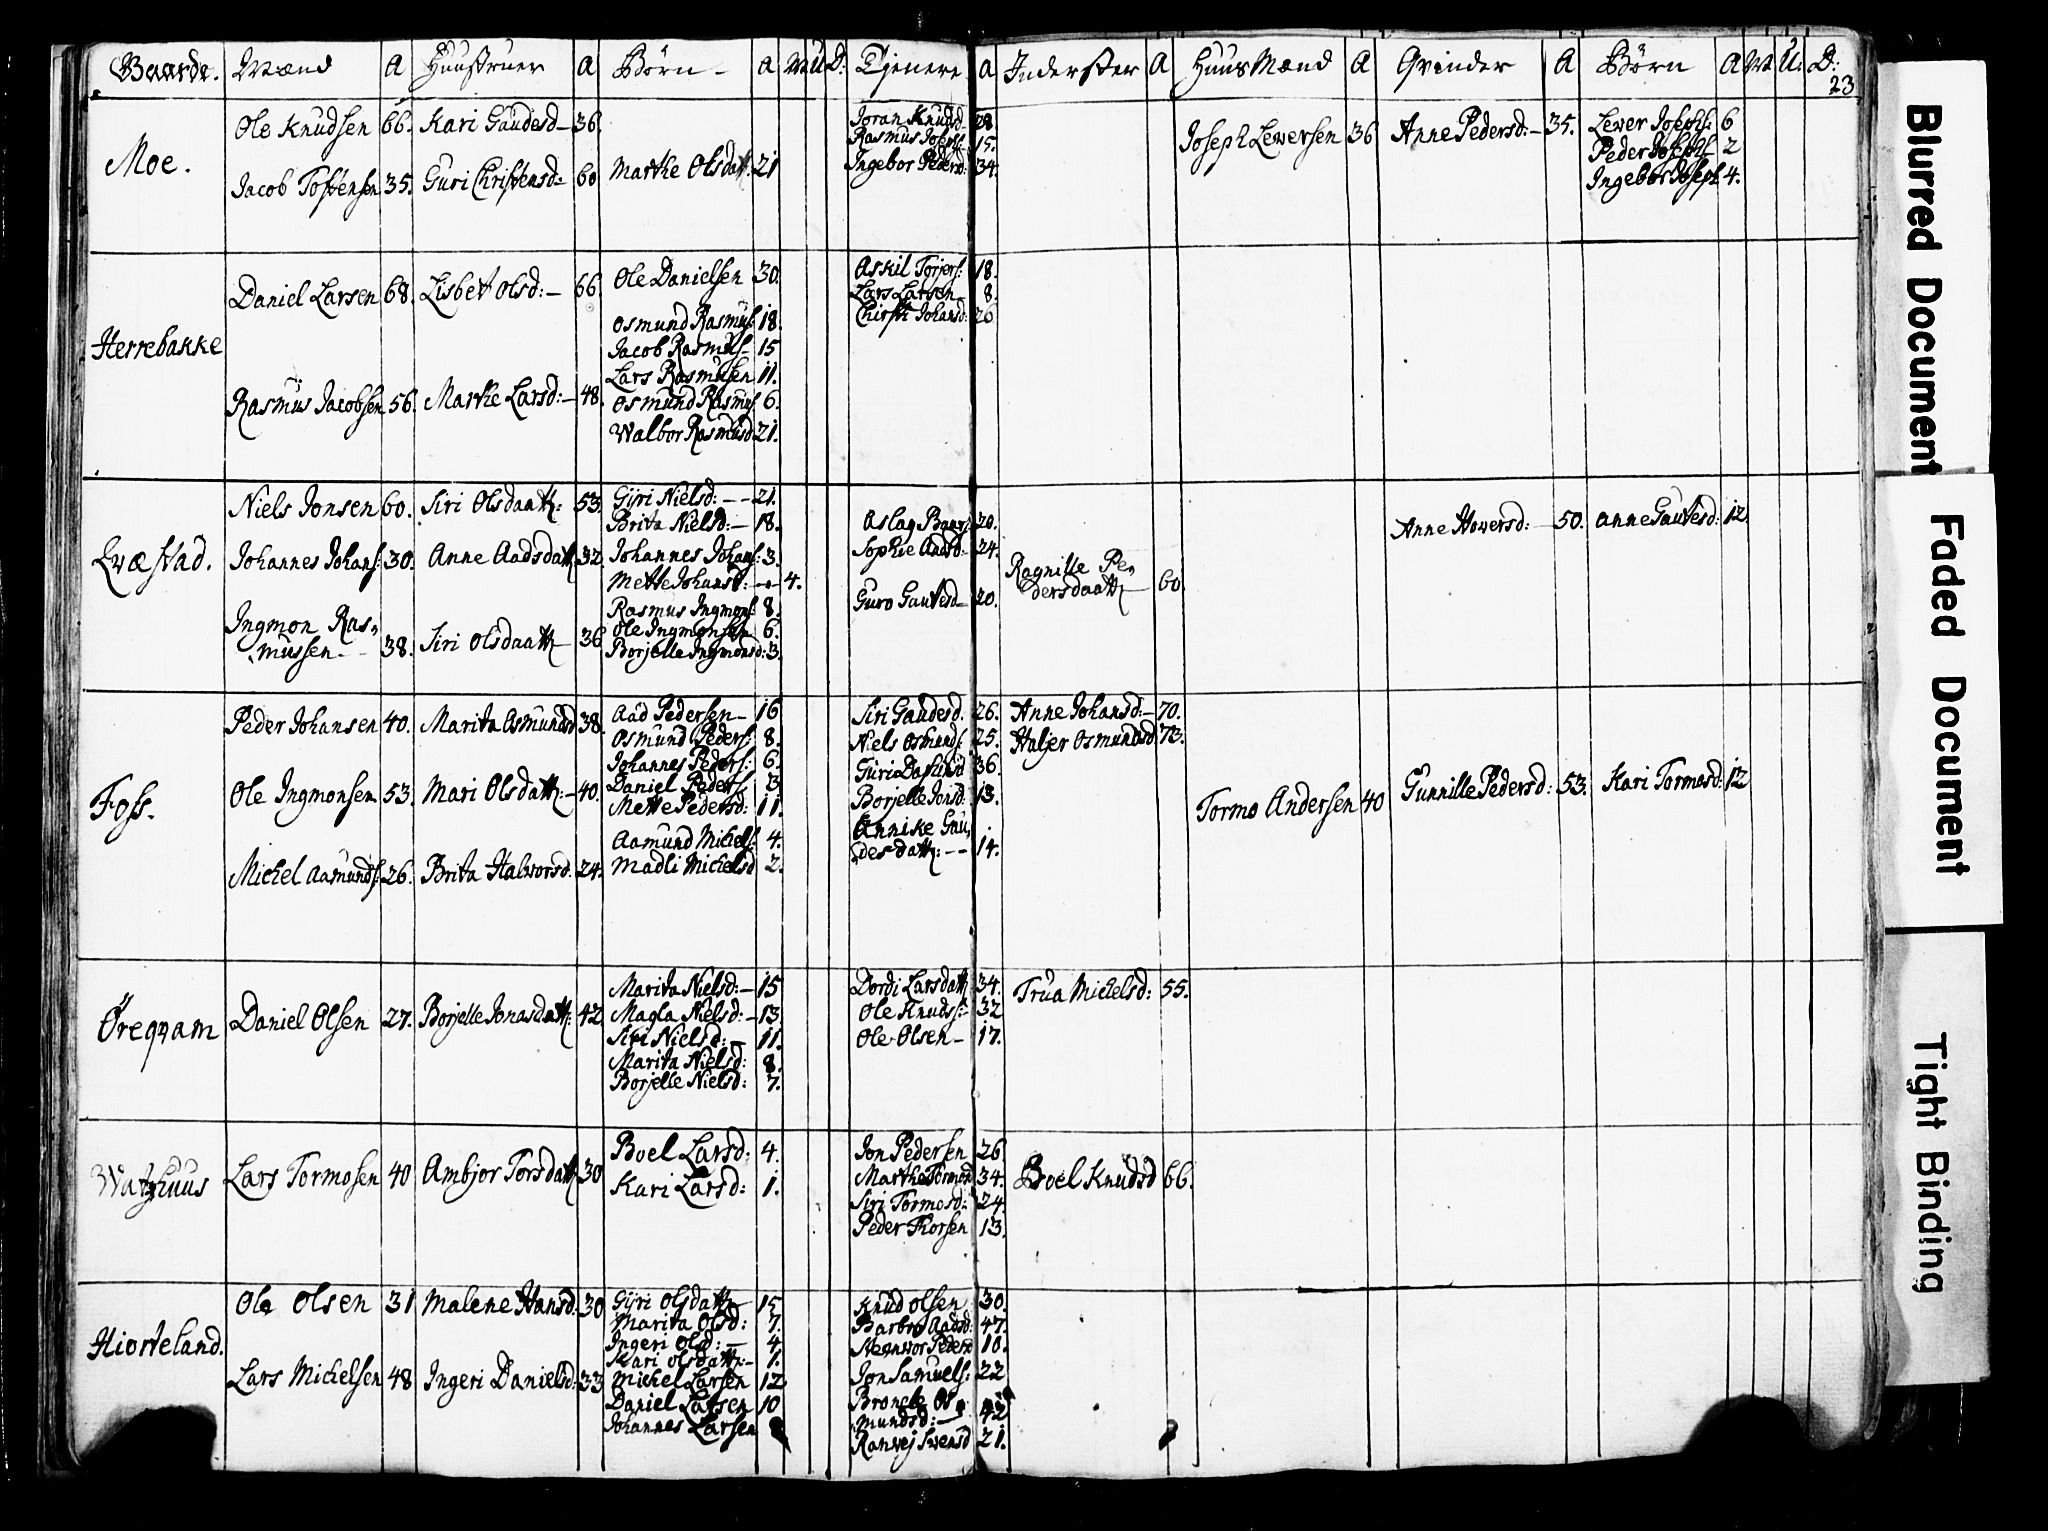 Gaarde. Mænd A Huustruer A Börn A M U D: Tjenere A Inderster A HuusMænd A Qvinder A Börn A M U: D:
23
Moe.
Ole Knudsen 66. Kari Gaudesd 36.
Jacob Tostensen 35. Guri Christensd: 60 Marthe Olsdatt. 21
Joran Knudsd 28
Rasmus Joseps: 15.
Ingebor Pedersd 34.
Joseph Lewersen 36 Anne Pedersd: 35.
Lewer Josephs: 6
Peder Josephs 2
Ingebor Joseph 4.
Herrebakke
Daniel Larsen 68. Lisbet Olsd: 66. Ole Danielsen 30.
Rasmus Jacobsen 56. Marthe Larsd: 48.
Osmund Rasmus: 18.
Jacob Rasmus 15
Lars Rasmusen 11.
Osmund Rasmus 6.
Walbor Rasmusd 21.
Askil Torjers: 18.
Lars Larsen 8.
Christi Johansd: 26
Qvæstad.
Niels Jonsen 60. Siri Olsdaatt: 53.
Gyri Nielsd: 21.
Brita Nielsd: 18.
Johannes Johans: 30. Anne Aadsdatt 32.
Johannes Johans: 3.
Mette Johansd: 4.
Ingmon Ras,
mussen 38. Siri Olsdaatt 36
Rasmus Ingmons: 8.
Ole Ingmonsen 6.
Borjelle Ingmonsd: 3.
Aslag 20.
Sophie Aadsd: 24.
Guro Gautesd 20.
Ragnille Pe,
dersdaatt 60.
Anne Howersd: 50. Anne Gautesd: 12
Foss.
Peder Johansen 40. Marita Osmundsd 38.
Ole Ingmonsen 53. Mari Olsdatt: 40.
Michel Aamunds: 26. Brita Halworsd. 24.
Aad Pedersen 16
Osmund Peders: 8.
Johannes Peders: 6.
Daniel Peders 3
Mette Pedersd: 11.
Aamund Michels: 4.
Madli Michelsd 2.
Siri Gaudesd. 26.
Niels Osmunds: 25.
Guri 36.
Borjelle Jonsd: 13.
Annike Gau,
desdatt: 14.
Anne Johansd: 70.
Haljer Osmundsd 73.
Tormo Andersen 40 Gunnille Pedersd: 53. Kari Tormosd: 12
Öreqvam
Daniel Olsen 27. Borjelle Jonasdatt: 42
Marita Nielsd: 15
Magla Nielsd: 13
Siri Nielsd: 11.
Marita Nielsd: 8.
Borjelle Nielsd: 7.
Dordi Larsdatt 34.
Ole Knuds: 32
Ole Olsen 17.
Trua Michelsd: 55.
Watshuus
Lars Tormosen 40 Ambjor Torsdatt 30
Boel Larsd: 4.
Kari Larsd: 1.
Jon Pedersen 26
Marthe Tormod 34.
Siri Tormosd: 24.
Peder Thorsen 13
Boel Knudsd 66.
Hiorteland.
Ole Olsen 31 Malene Hansd: 30
Lars Michelsen 48 Ingeri Danielsd: 33
Gyri Olsdatt 15
Marita Olsd: 7.
Ingeri Olsd: 4
Kari Olsdatt: 1.
Michel Larsen 12
Daniel Larsen 10
Johannes Larsen
Knud Olsen 30.
Barbro Aadsd: 47.
Pedersd 18.
Jon Samuels: 22
Bronele Os,
mundsd: 42
Ranvej Swensd 21.
Blurred Document
Faded Document
Tight Binding